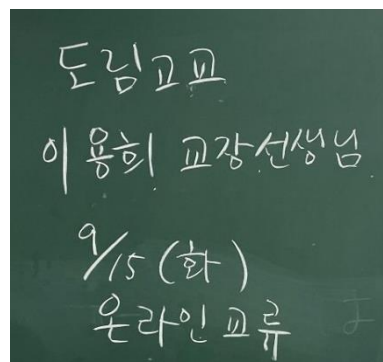 도림고교
이용희 교장선생님
9/15 (화)
온라인교류